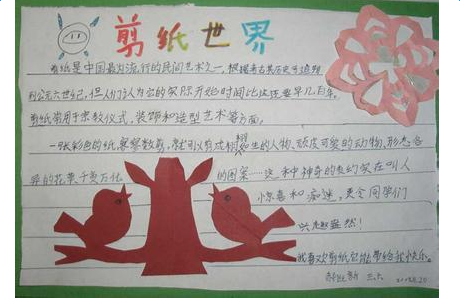 剪纸世界
剪纸是中国最为流行的民间艺术之一,根据考古其历史可追溯
到公元六世纪,但人们认为它的实际开始时间比这还要早几百年。
剪纸常用于宗教仪式,装饰和造型艺术等方面。
一张彩色的纸,寥寥数剪,就可以剪成栩栩如生的人物、顽皮可爱的动物,形态各
异的花草千变万化的图案……这种神奇的表约实在叫人
惊喜和痴迷,更令同学们
兴趣盎然!
我喜欢剪纸它能带给我快乐。
三六